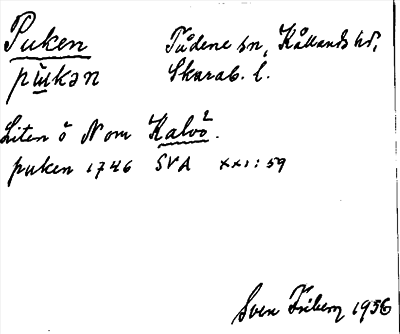 Puken Tådene sn, Kållands hd,
pɯkən Skarab. l.
Liten ö N om Kalvö 2.
puken 1746 SVA XXI:59
Sven Friberg 1936